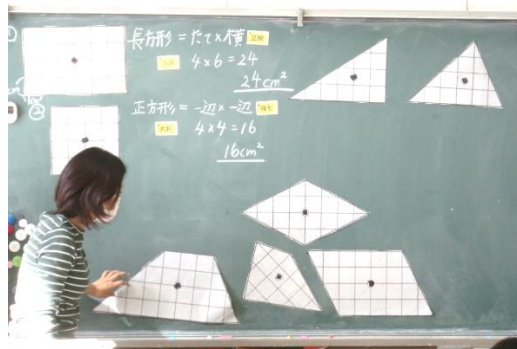 ①
長方形=たて×横
4×6=24
24cm²
②
正方形=一辺×一辺
4×4=16
16cm²